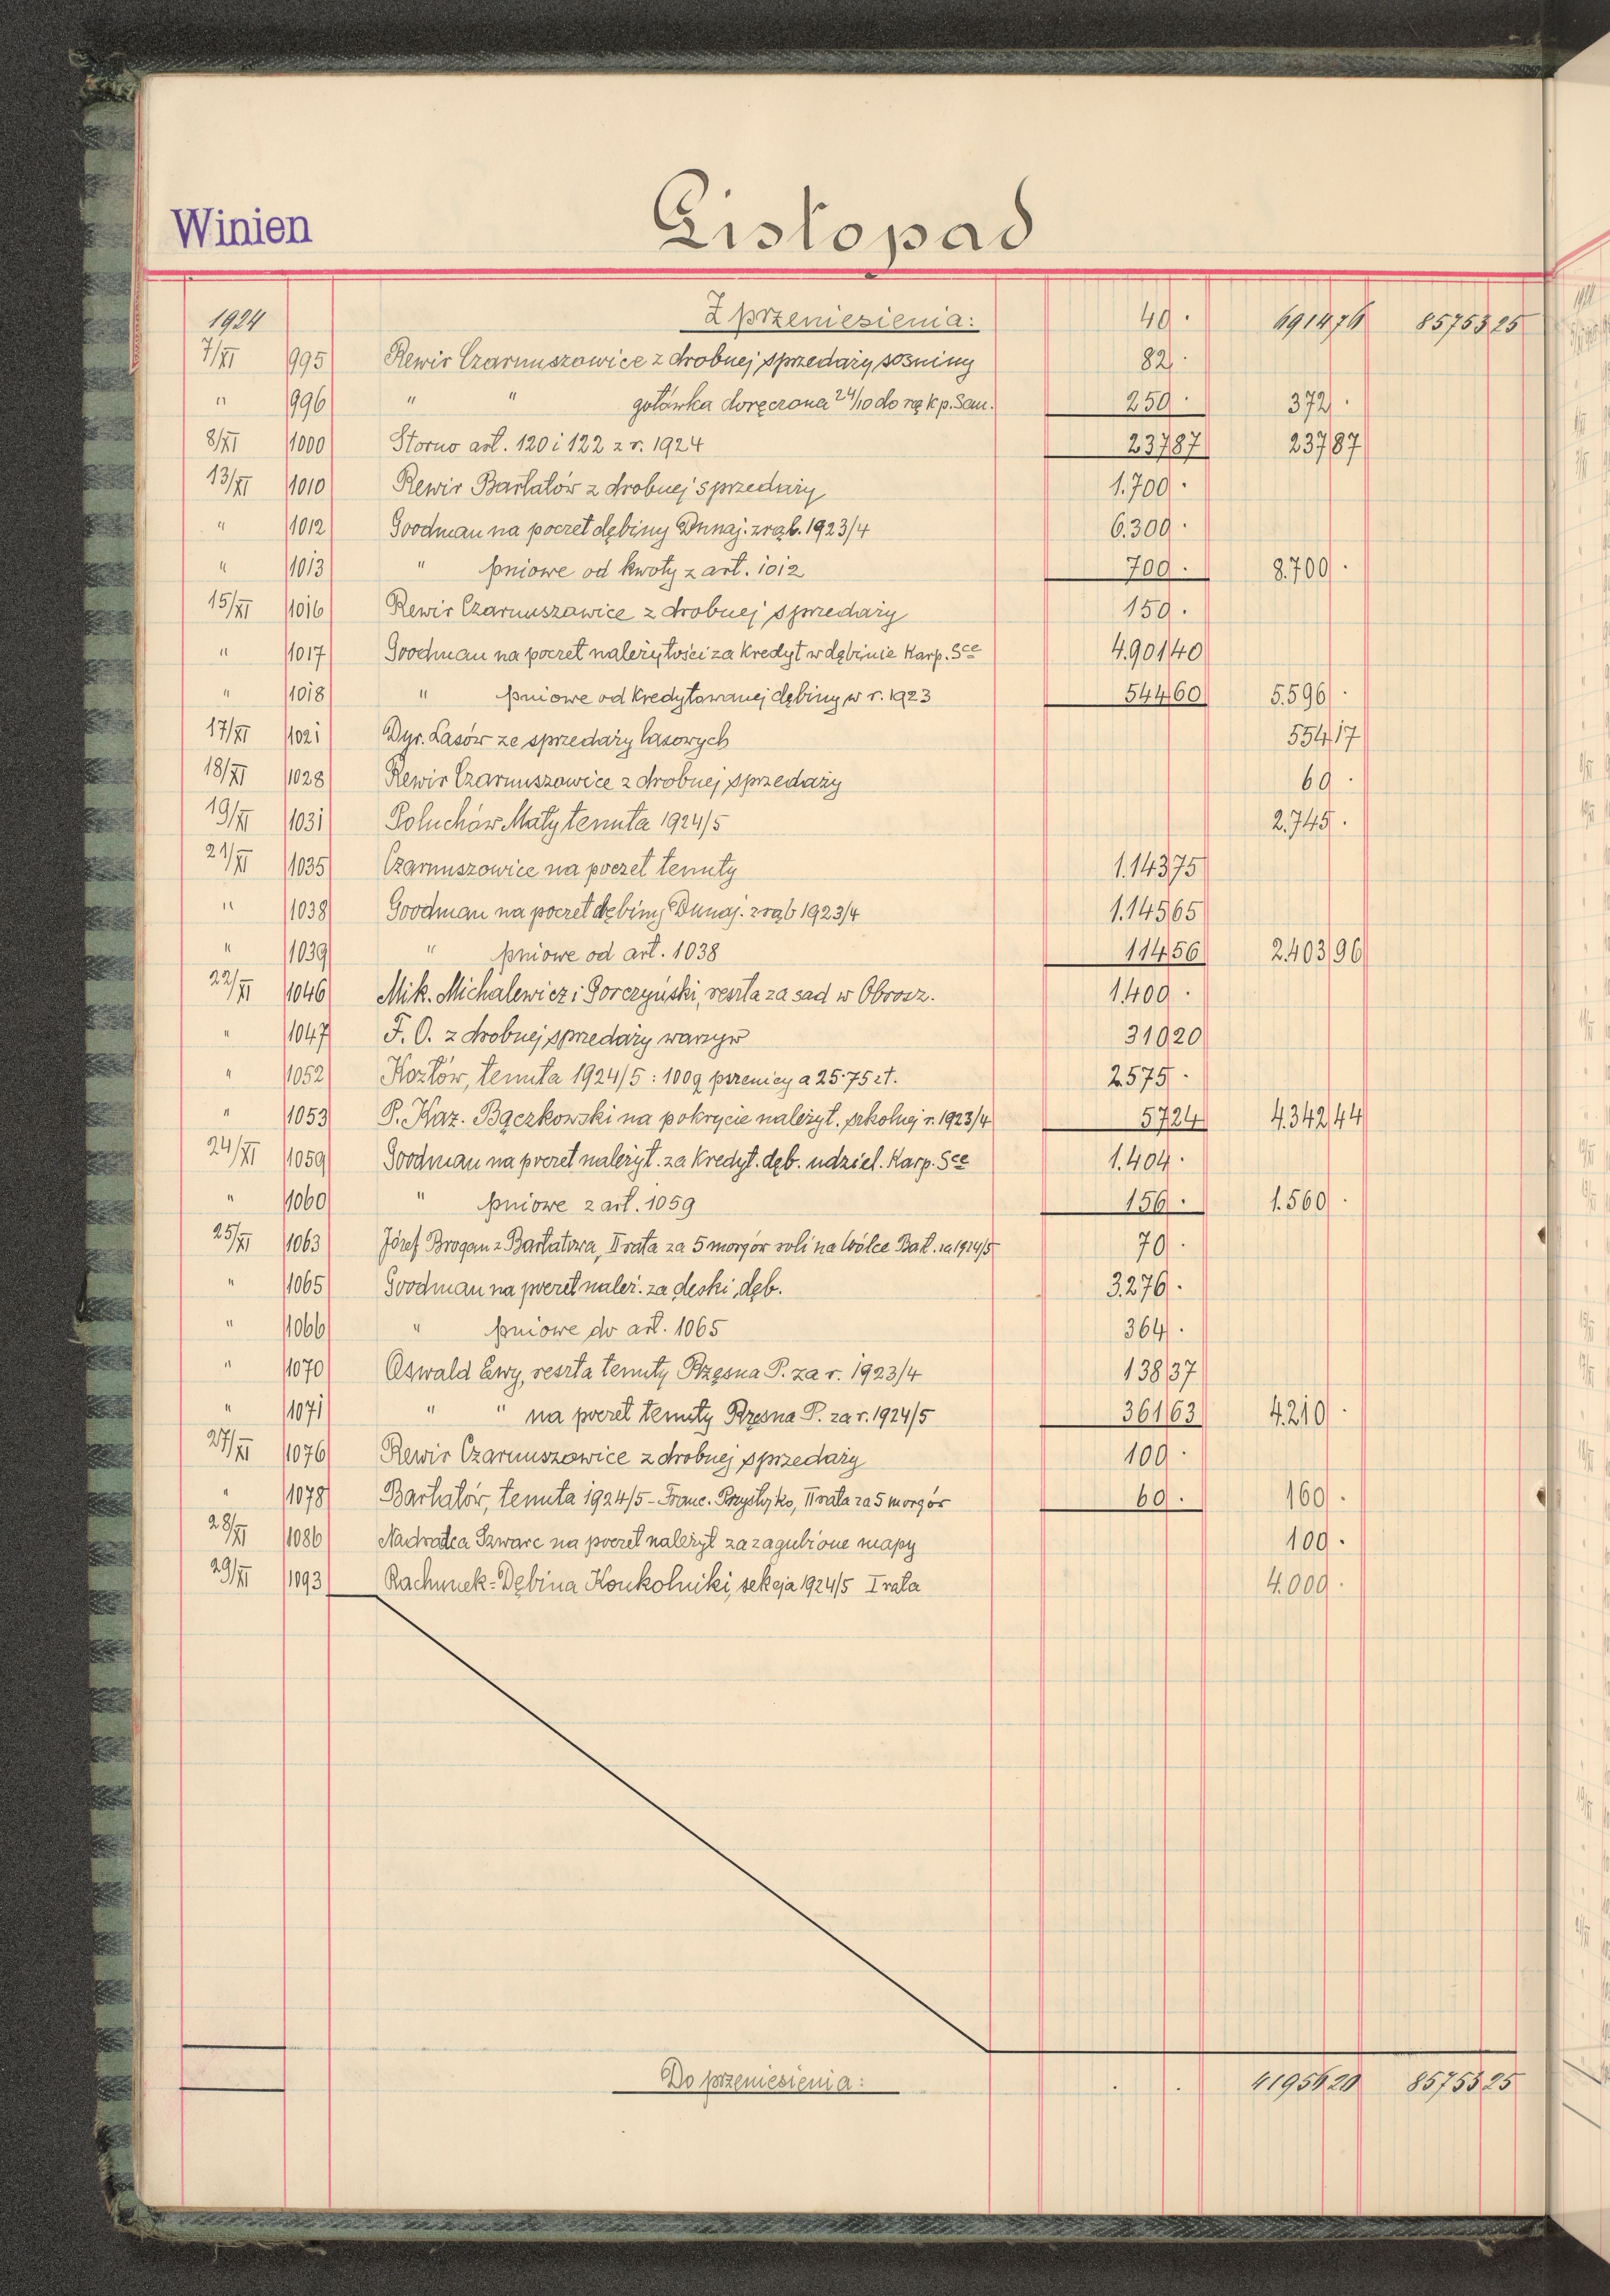 Winien
Listopad
1924 Z przeniesienia: 40 · 6914 76 85753 25
7/XI 995 Rewir Czarnuszowice z drobnej sprzedaży sosniny 82 ·
" 996 " " gotówka doręczona 24/10 do rąk p. San. 250 · 372 ·
8/XI 1000 Storno art. 120 i 122 z r. 1924 237 87 237 87
13/XI 1010 Rewir Bartatów z drobnej sprzedaży 1.700 ·
" 1012 Goodman na poczet dębiny Dunaj. zrąb. 1923/4 6.300 ·
" 1013 " pniowe od kwoty z art. 1012 700 · 8.700 ·
15/XI 1016 Rewir Czarnuszowice z drobnej sprzedaży 150 ·
" 1017 Goodman na poczet należytości za kredyt w dębinie Karp. Sce 4.901 40
" 1018 " pniowe od kredytowanej dębiny w r. 1923 544 60 5.596 ·
17/XI 1021 Dyr. Lasów ze sprzedaży lasowych 554 17
18/XI 1028 Rewir Czarnuszowice z drobnej sprzedaży 60 ·
19/XI 1031 Poluchów Mały tenuta 1924/5 2.745 ·
21/XI 1035 Czarnuszowice na poczet tenuty 1.143 75
" 1038 Goodman na poczet dębiny Dunaj. zrąb 1923/4 1.145 65
" 1039 " pniowe od art. 1038 114 56 2.403 96
22/XI 1046 Mik. Michalewicz i Gorczyński, reszta za sad w Obrosz. 1.400 ·
" 1047 F. O. z drobnej sprzedaży warzyw 310 20
" 1052 Kozłów, tenuta 1924/5 : 100q pszenicy a 25·75 zł. 2.575 ·
" 1053 P. Kaz. Bączkowski na pokrycie należyt. szkolnej r. 1923/4 57 24 4.342 44
24/XI 1059 Goodman na poczet należyt. za kredyt. dęb. udziel. Karp. Sce 1.404 ·
" 1060 " pniowe z art. 1059 156 · 1.560 ·
25/XI 1063 Józef Brogan z Bartatowa, II rata za 5 morgów roli na Wólce Bart. za 1924/5 70 ·
" 1065 Goodman na poczet należ. za deski dęb. 3.276 ·
" 1066 " pniowe do art. 1065 364 ·
" 1070 Oswald Ewy, reszta tenuty Rzęsna P. za r. 1923/4 138 37
" 1071 " " na poczet tenuty Rzęsna P. za r. 1924/5 361 63 4.210 ·
27/XI 1076 Rewir Czarnuszowice z drobnej sprzedaży 100 ·
" 1078 Bartatów, tenuta 1924/5 - Franc. Przystyjko, II rata za 5 morgów 60 · 160 ·
28/XI 1086 Nadradca Szwarc na poczet należyt za zagubione mapy 100 ·
29/XI 1093 Rachunek-Dębina Konkolniki, sekcja 1924/5 I rata 4.000 ·
Do przeniesienia: · · 41956 20 85753 25